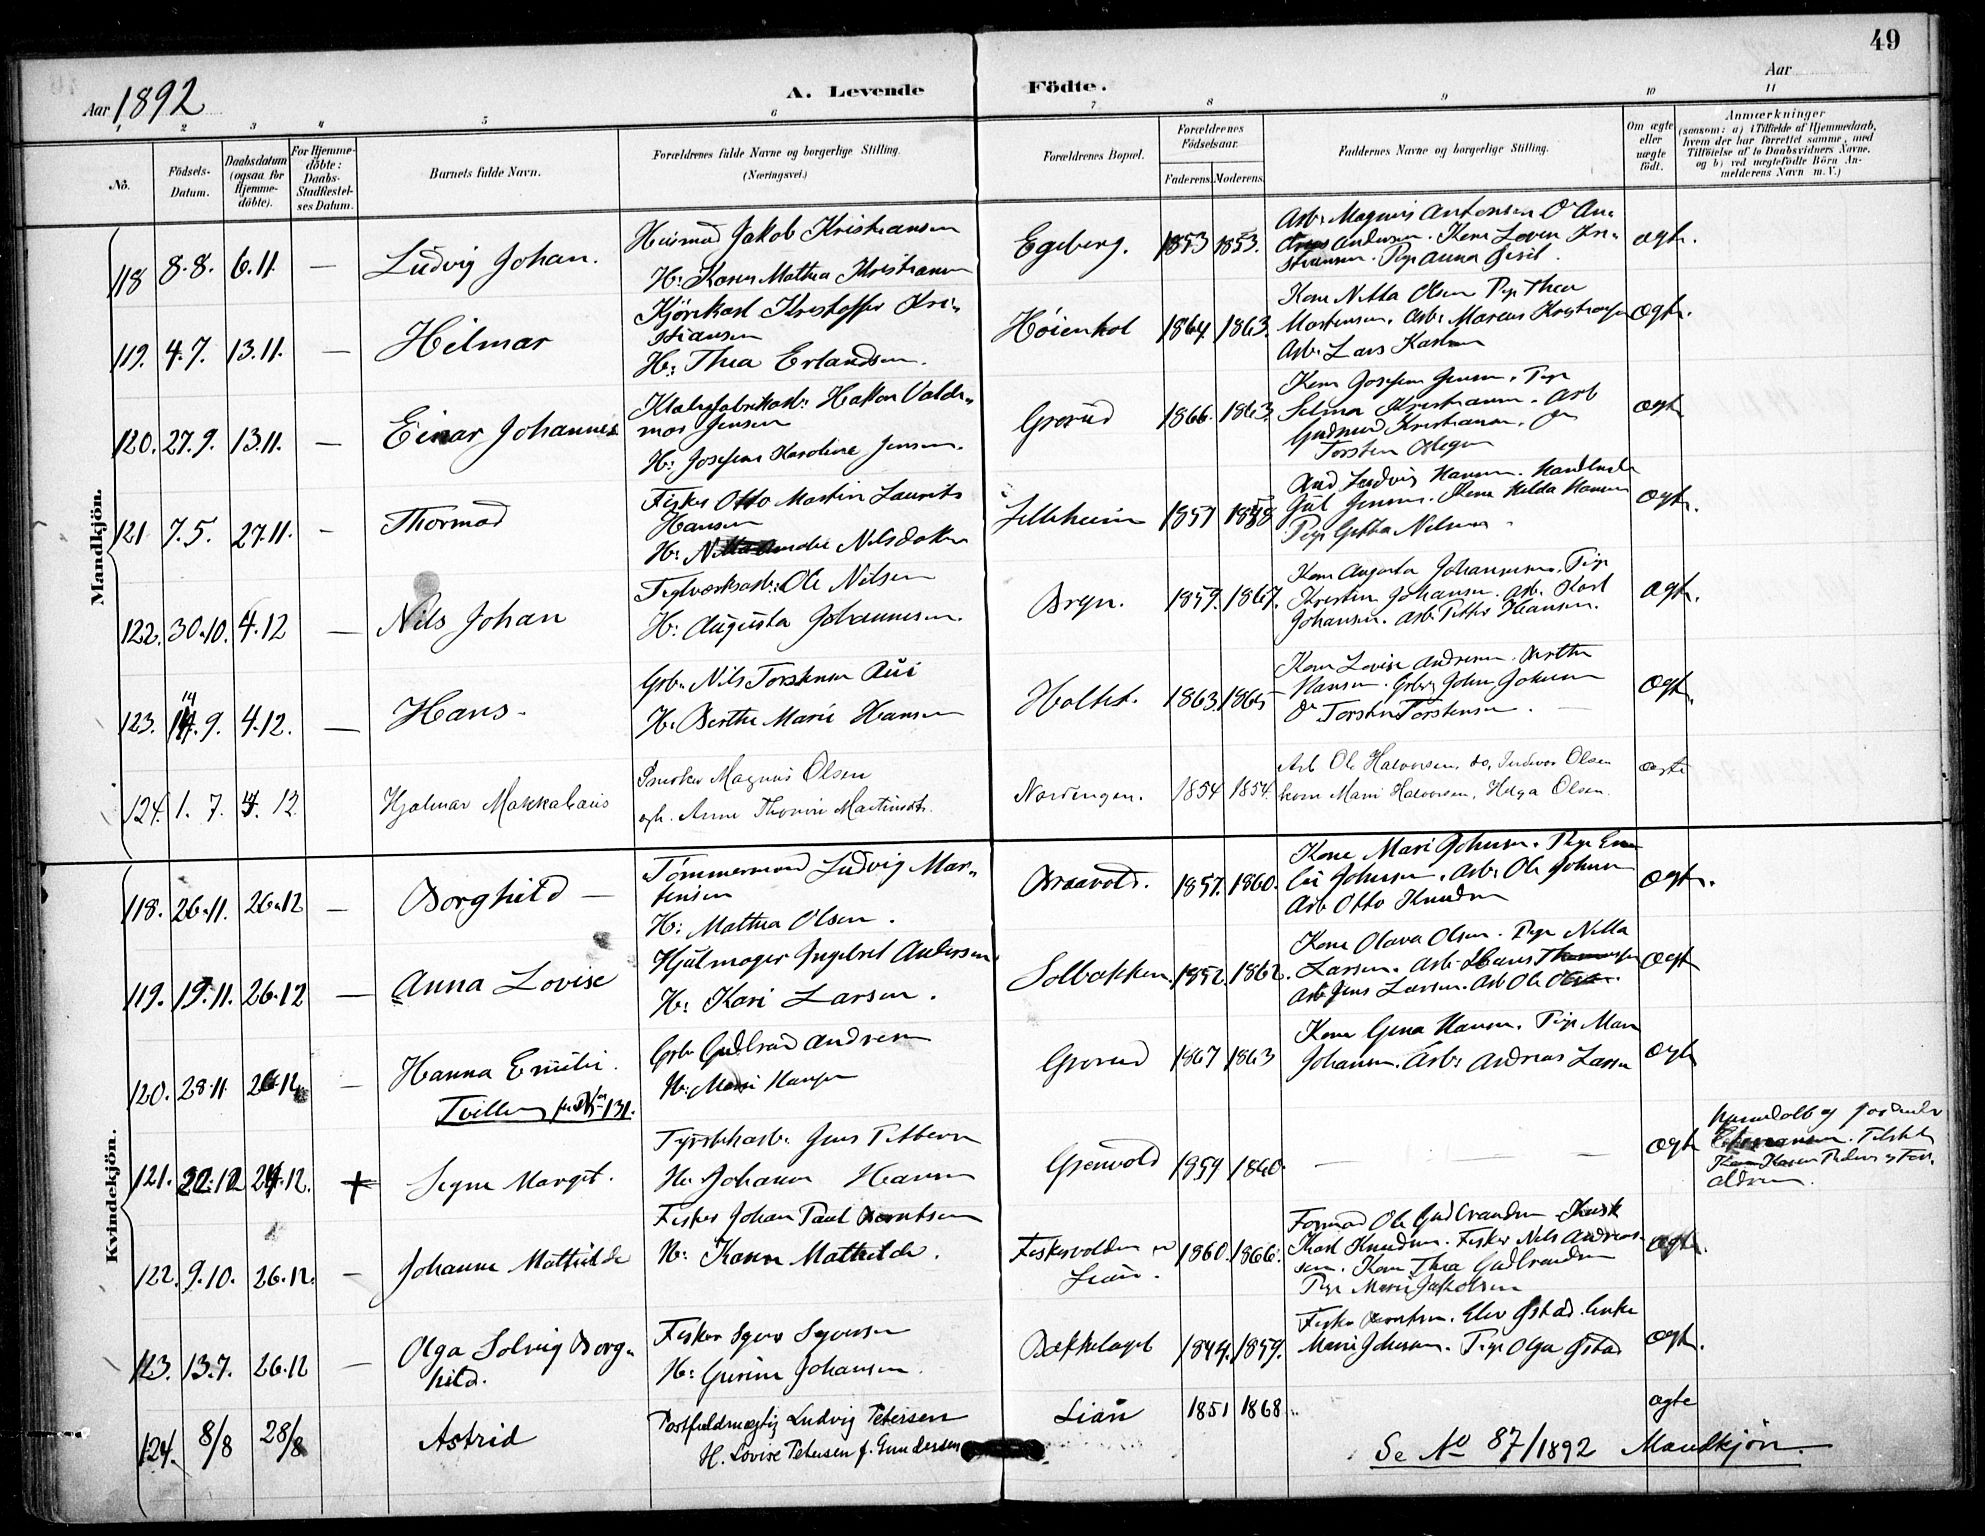 49
Aar 1892
A. Levende Födte.
Aar
1 2 3 4 5 6 7 8 9 10 11
No.
Födsels-Datum.
Daabsdatum (ogsaa for Hjemme-döbte).
For Hjemme-döbte: Daabs-Stadfæstel-ses Datum.
Barnets fulde Navn.
Forældrenes fulde Navne og borgerlige Stilling. (Næringsvei.)
Forældrenes Bopæl.
Forældrenes Födselsaar.
Faderens. Moderens.
Faddernes Navne og borgerlige Stilling.
Om ægte eller uægte födt.
Anmærkninger
(saasom: a) i Tilfælde af Hjemmedaab, hvem der har forrettet samme, med Tilföielse af to Daabsvidners Navne, og b) ved uægtefödte Börn An-melderens Navn m. V.)
Mandkjön.
118 8.8. 6.11. — Ludvig Johan.
Husmand Jakob Kristiansen
H: Karen Mathea Kristiansen
Egeberg. 1853 1853.
Arb: Magnus Antonsen Do An-
dreas Andersen. Kone Lovise Kri-
stiansen. Pige Anna
ægte.
119. 4.7. 13.11. — Hilmar
Kjörekarl Kristoffer Kri-
stiansen
H: Thea Erlandsen.
Høienhol 1864 1863.
Kone Netta Olsen Pige Thea
Mortensen. Arb: Marcus Kristiansen
Arb: Lars Karlsen
ægte.
120. 27.9. 13.11. — Einar Johannes
Hakon Valde-
mar Jensen
H: Josefine Karoline Jensen.
Grorud 1866. 1863.
Kone Josefine Jensen. Pige
Selma Kristiansen. Arb
Gudmund Kristiansen. Do
Torsten
ægte
121 7.5. 27.11. — Thormod
Fisker Otto Martin Laurits
Hansen
H: Nilsdatter
1857 1858
Ludvig Hansen.
Jensen. Kone Hilda Hansen
Pige Gitta Nilsen
ægte.
122. 30.10. 4.12 — Nils Johan
Teglværksarb: Ole Nilsen
H: Augusta Johannesen.
Bryn. 1859. 1867.
Kone Augusta Johannesen. Pige
Kristin Johansen. Arb. Karl
Johansen. Arb. Petter Hansen.
ægte.
123. 14.9. 4.12. — Hans.
Grb. Nils Torstensen
H: Berthe Marie Hansen
Holtet. 1863. 1865
Kone Lovise Andresen. Berthe
Hansen. John Johnsen
Do Torsten Torstensen.
ægte.
124. 1. 7. 4. 12. Hjalmar Makkabæus
Snedker Magnus Olsen
H. Anne Thorine Martinsdtr.
Nordengen. 1854 1854.
Arb Ole Halvorsen, do. Olsen
kone Marie Halvorsen, Helga Olsen.
ægte
Kvindekjön.
118. 26.11. 26.12 — Borghild —
Tømmermand Ludvig Mar-
tensen
H: Mathea Olsen.
Braavold. 1857. 1860.
Kone Mari Johnsen. Pige Emi-
lie Johnsen. Arb: Ole Johnsen
Arb Otto Knudsen
ægte.
119. 19.11. 26.12 — Anna Lovise
Hjulmager Ingebret Andersen
H: Kari Larsen.
Solbakken. 1852. 1862.
Kone Olava Olsen. Pige Nilla
Larsen. Arb. Hans
Arb Jens Larsen. Arb Ole Olsen.
ægte
120. 28.11. 26.12 — Hanna Emilie.
Tvilling 131.
Grb Gudbrand Andresen
H: Mari Hansen
Grorud 1867 1863
Kone Gina Hansen. Pige Mari
Johansen. Arb: Andreas Larsen
ægte
121. 22.12 24.12. + Signe Margit.
Fyrstikarb. Jens Pettersen
H: Johanne Hansen
Grønvold 1859 1860.
— — —
ægte
Hjemmedøbt af Jordmoder
Kone Karen Pedersen og For-
ældrene.
122. 9.10. 26.12. — Johanne Mathilde
Fisker Johan Paul Berntsen
H: Karen Mathilde.
Fiskervolden
Lian. 1860. 1866.
Formand Ole Gudbrandsen Kusk
Karl Knudsen. Fisker Nils Andreas-
sen. Kone Thea Gudbrandsen
Pige Marie Jakobsen
ægte.
123. 13.7. 26.12 — Olga Solveig Borg-
hild.
Fisker Syver Syversen
H: Gurine Johansen.
Bekkelaget 1844. 1859.
Fisker Berntsen. Elev Østad. Enke
Marie Johnsen. Pige Olga Østad
ægte.
124. 8/8 28/8 Astrid
Postfuldmægtig Ludvig Petersen
H. Lovise Petersen f. Gundersen
Lian 1851 1868
ægte
Se No 87/1892 Mandkjön.